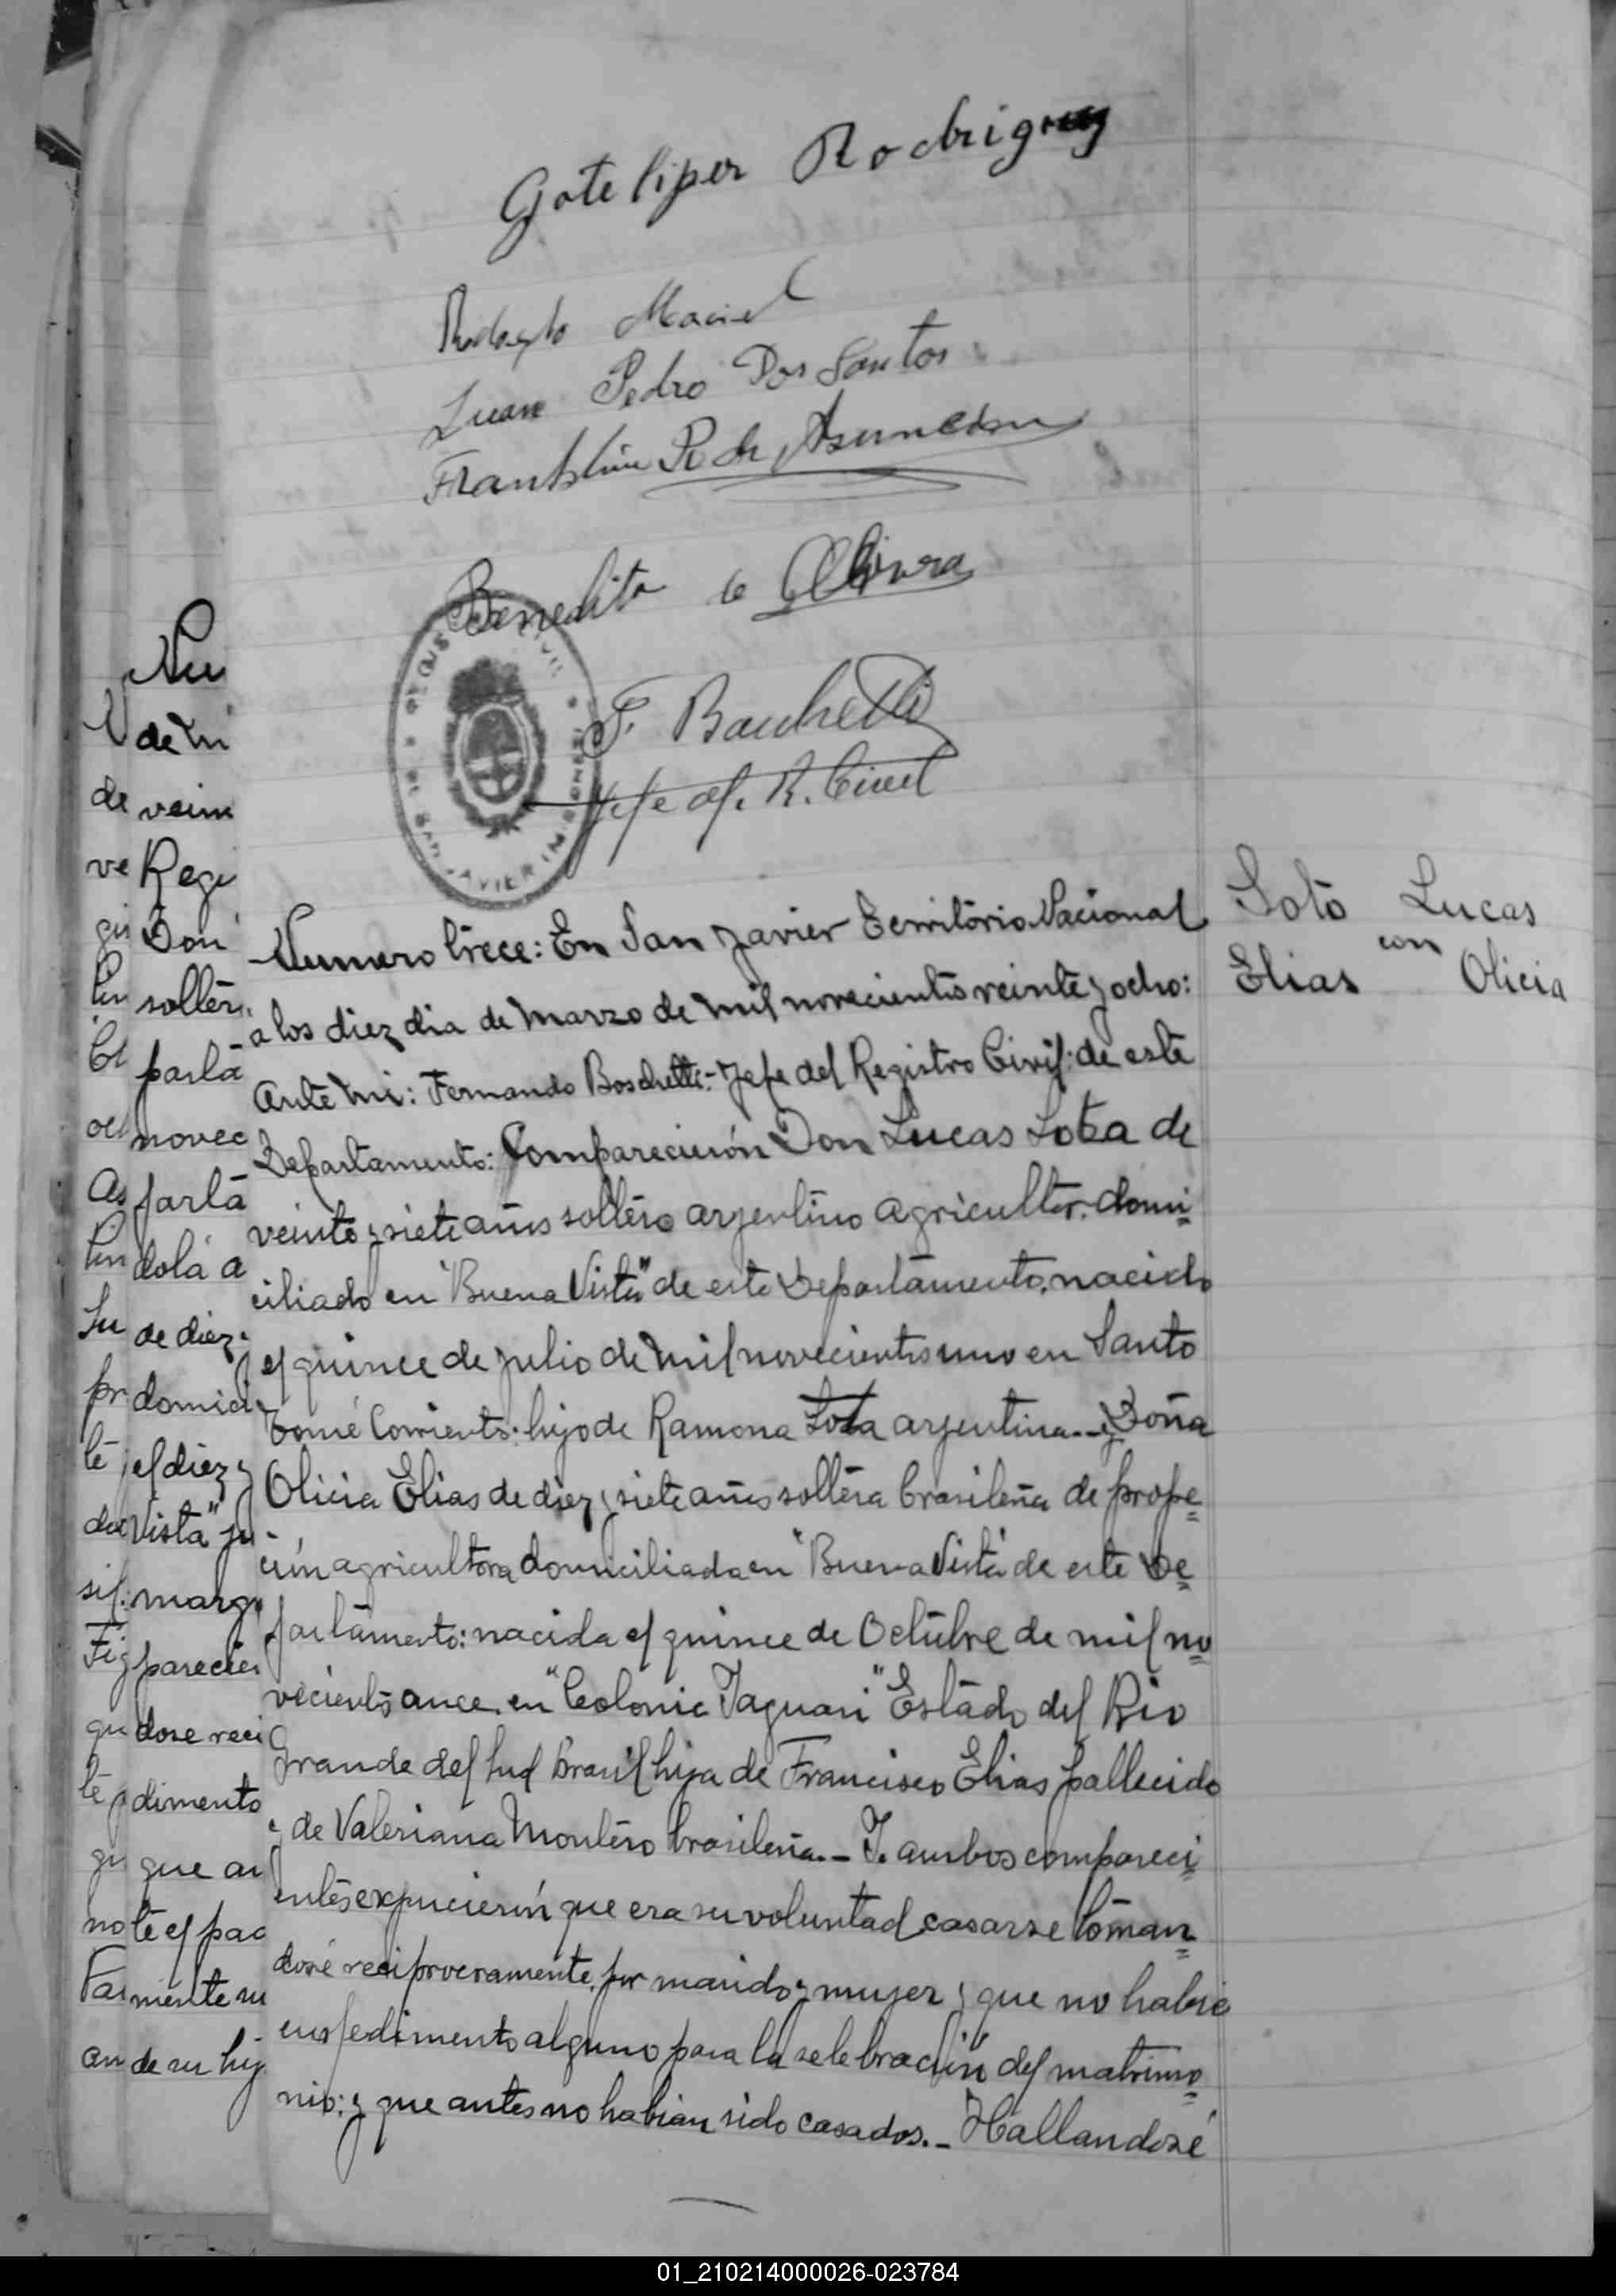 Goteliper Rodriguez
Rodolfo Maciel
Juan Pedro Dos Santos
Franklin R de Asuncion
Benedito de Olivera
F. Bochetti
Jefe of. R. Civil
Numero trece: En San Javier Territorio Nacional
a los diez dia de Marzo de mil novecientos veinte y ocho:
Ante mi: Fernando Boschetti.- Jefe del Registro Civil: de este
Departamento: Comparecierón Don Lucas Sota de
veinte y siete años soltéro argentino agricultor. domi
ciliado en "Buena Vista" de este Departamento. nacido
el quince de Julio de mil novecientos uno en Santo
Tomé Corrients. hijo de Ramona Sota argentina.- y Doña
Olicia Elias de diez y siete años soltera brasileña de profe
ción agricultora domiciliada en "Buena Vista" de este De
partamento: nacida el quince de Octubre de mil no
vecientos once. en "Colonia Jaguari" Estado del Rio
Grande del Sud Brasil hija de Francisco Elias fallecido
y de Valeriana Montéro brasileña.- I. ambos compareci
entés expucierón que era su voluntad casarse toman
dosé reciprocramente. por marido y mujer y que no habia
empedimento alguno para la selebración del matrimo
nio: y que antes no habian sido casados.- Hallandosé
Soto Lucas
con
Elias Olicia
REGIS CIVIL
DE SAN JAVIER (MISIONES)
Nu
de mi
veim
Regi
Don
soltér
parta
novec
parta
dola a
de diez
domici
el diez y
Vista" ju
marg
parecier
dose reci
dimento
que an
té el pad
mente su
de su hij
01_210214000026-023784